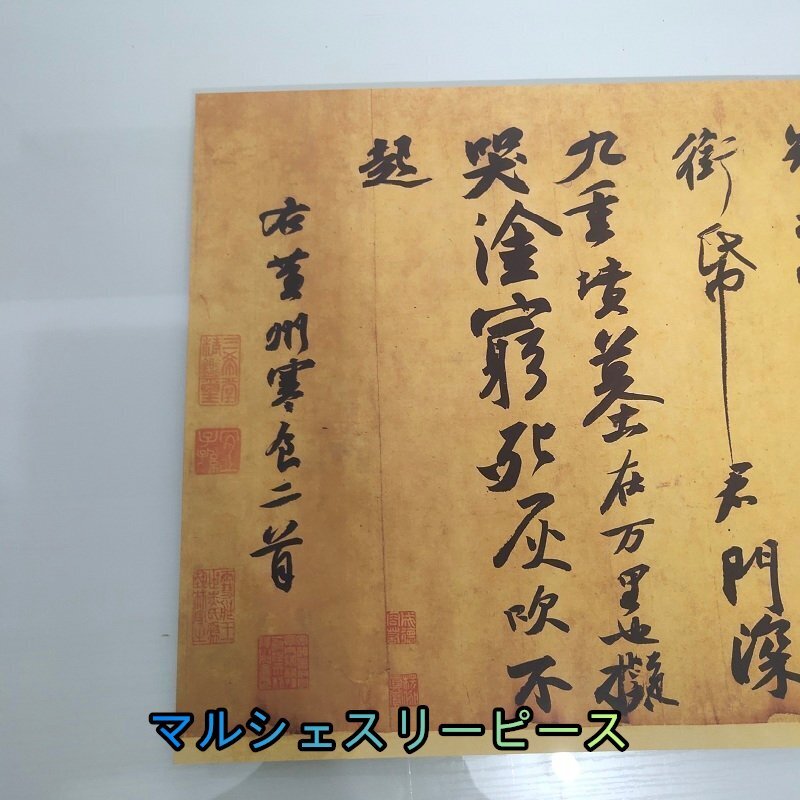 銜帋君門深
九重墳墓在万里也擬
哭塗窮死灰吹不
起
右黄州寒食二首
マルシェスリーピース